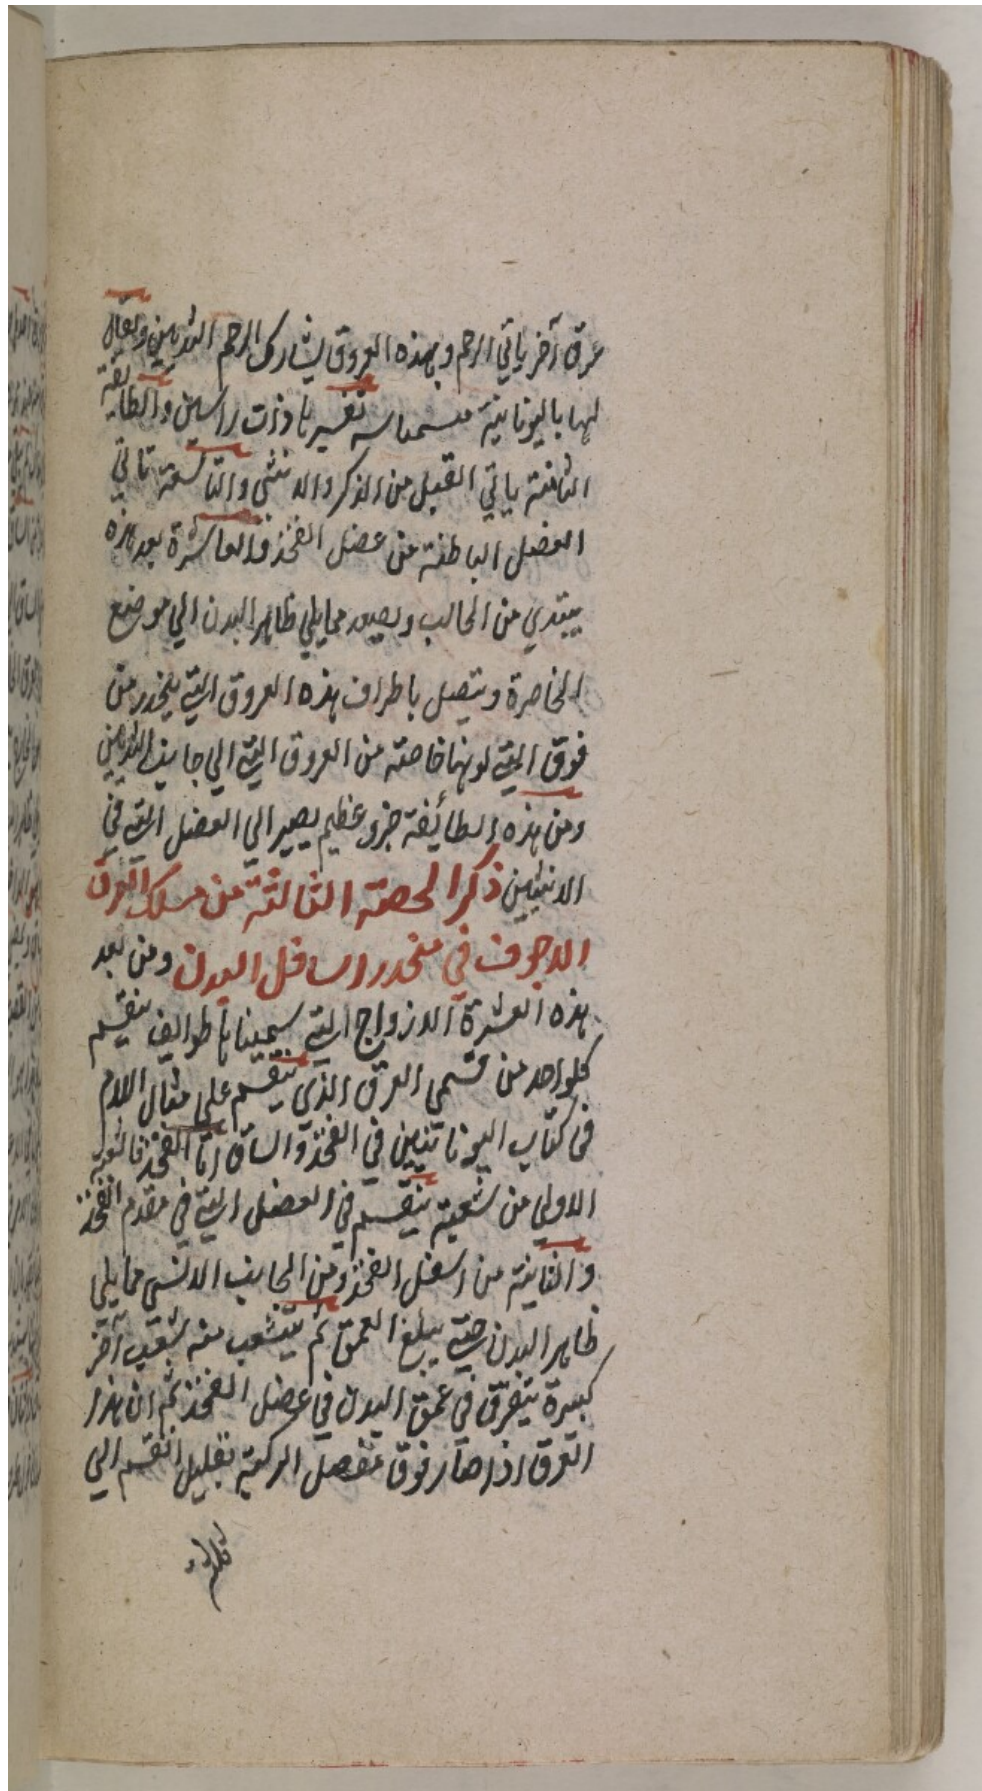 عرق آخر ياتي الرحم وبهذه العروق يشارك الرحم الثديين ويقال
لها باليونانية تفسيرها ذات راسين والطايفة
الثامنة ياتي القبل من الذكر والانثى والتاسعة تاتي
العضل الباطنة من عضل الفخذ والعاشرة بعد هذه
يبتدي من الحالب ويصعد مما يلي ظاهر البدن الي موضع
الخاصرة ويتصل باطراف هذه العروق التي ينحدر من
فوق التي لونها خاصته من العروق التي الي جانب الثديين
ومن هذه الطائفة جزو عظيم يصير الي العضل التي في
الانثيين ذكر الحصة الثالثة من مسلك العرق
الاجوف في منحدر اسافل البدن ومن بعد
هذه العشرة الازواج التي سميناها طوايف ينقسم
كلواحد من قسمي العرق الذي ينقسم على مثال اللام
في كتاب اليونانيين في الفخذ والساق اما الفخذ فالشعبة
الاولي من شعبة ينقسم في العضل التي في مقدم الفخذ
والثانية من اسفل الفخذ ومن الجانب الانسي مما يلي
ظاهر البدن حتي يبلغ العمق ثم يتشعب منه شعب آخر
كبيرة يتفرق في عمق البدن في عضل الفخذ ثم ان هذا
العرق اذا صار فوق مفصل الركبة بقليل انقسم الي
ثلثة